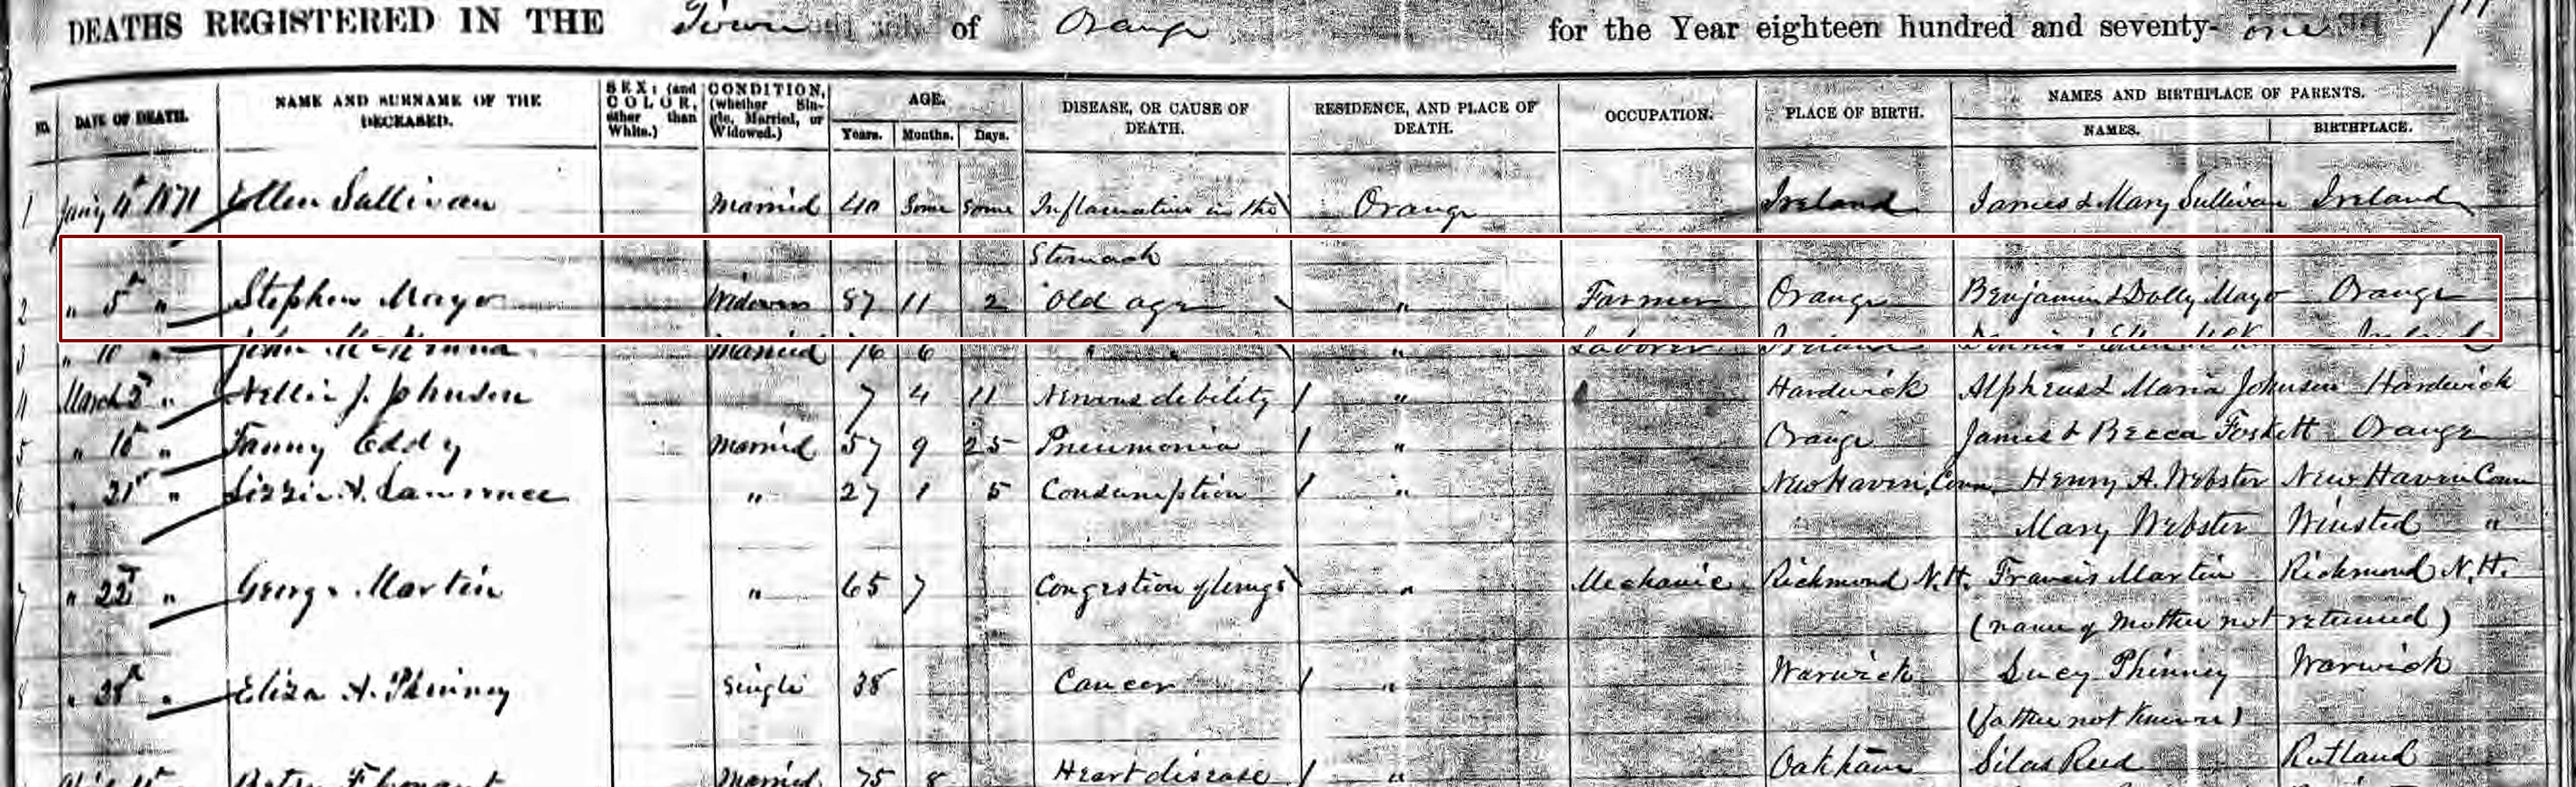 DEATHS REGISTERED IN THE Town of Orange for the Year eighteen hundred and seventy- one
NO. DATE OF DEATH. NAME AND SURNAME OF THE DECEASED. SEX; (and COLOR, other than White.) CONDITION, (whether Single, Married, or Widowed.) AGE. Years. Months. Days. DISEASE, OR CAUSE OF DEATH. RESIDENCE, AND PLACE OF DEATH. OCCUPATION. PLACE OF BIRTH. NAMES AND BIRTHPLACE OF PARENTS. NAMES. BIRTHPLACE.
1 Jany 4th 1871 Ellen Sullivan Married 40 Some Some Inflamation in the Orange Ireland James & Mary Sullivan Ireland
Stomach
2 " 5th " Stephen Mayo Widower 87 11 2 Old age " Farmer Orange Benjamin & Dolly Mayo Orange
3 " 10 " John McKenna Married 76 6 " " Laborer Ireland Ireland
4 March 2d " Nellie J. Johnson 7 4 11 Nervous debility " Hardwick Alpheus & Maria Johnson Hardwick
5 " 10th " Fanny Eddy Married 57 9 25 Pneumonia " Orange James & Becca Foskett Orange
6 " 21st " Lizzie A. Lawrence " 27 1 5 Consumption " New Haven, Conn Henry A. Webster New Haven Conn
Mary Webster Winsted "
7 " 22d " George Martin " 65 7 Congestion of lungs " Mechanic Richmond N.H. Francis Martin Richmond N.H.
(name of Mother not returned)
8 " 28th " Eliza A. Phinney Single 38 Cancer " Warwick Lucy Phinney Warwick
(father not known)
Married 75 8 Heart disease " Oakham Silas Reed Rutland